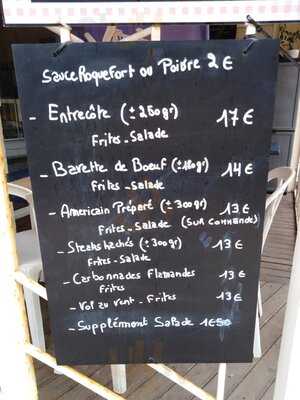 Sauce Roquefort ou Poivre 2€
- Entrecôte (±250gr) 17€
Frites - Salade
- Bavette de Boeuf (±180gr) 14€
Frites - Salade
- Americain Préparé (±300gr) 13€
Frites - Salade (SUR COMMANDE)
- Steaks hachés (±300gr) 13€
Frites - Salade
- Carbonnades Flamandes 13€
Frites
- Vol au Vent - Frites 13€
- Supplément Salade 1€50